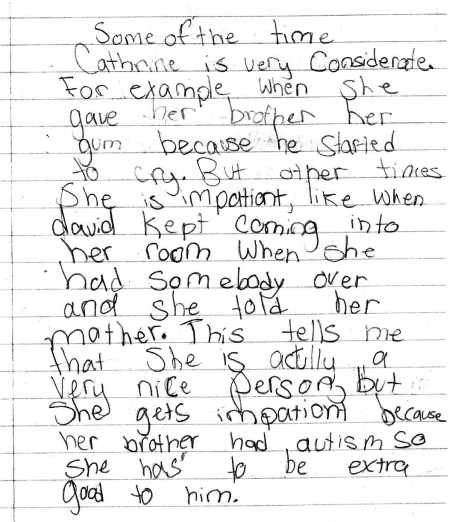 Some of the time
Cathrine is very Considerate.
For example when she
gave her brother her
gum because he started
to cry. But other times
She is impationt, like when
david kept coming into
her room when she
had somebody over
and she told her
mather. This tells me
that She is actilly a
very nice person, but
She gets inpationt because
her brother had autism so
she has to be extra
good to him.